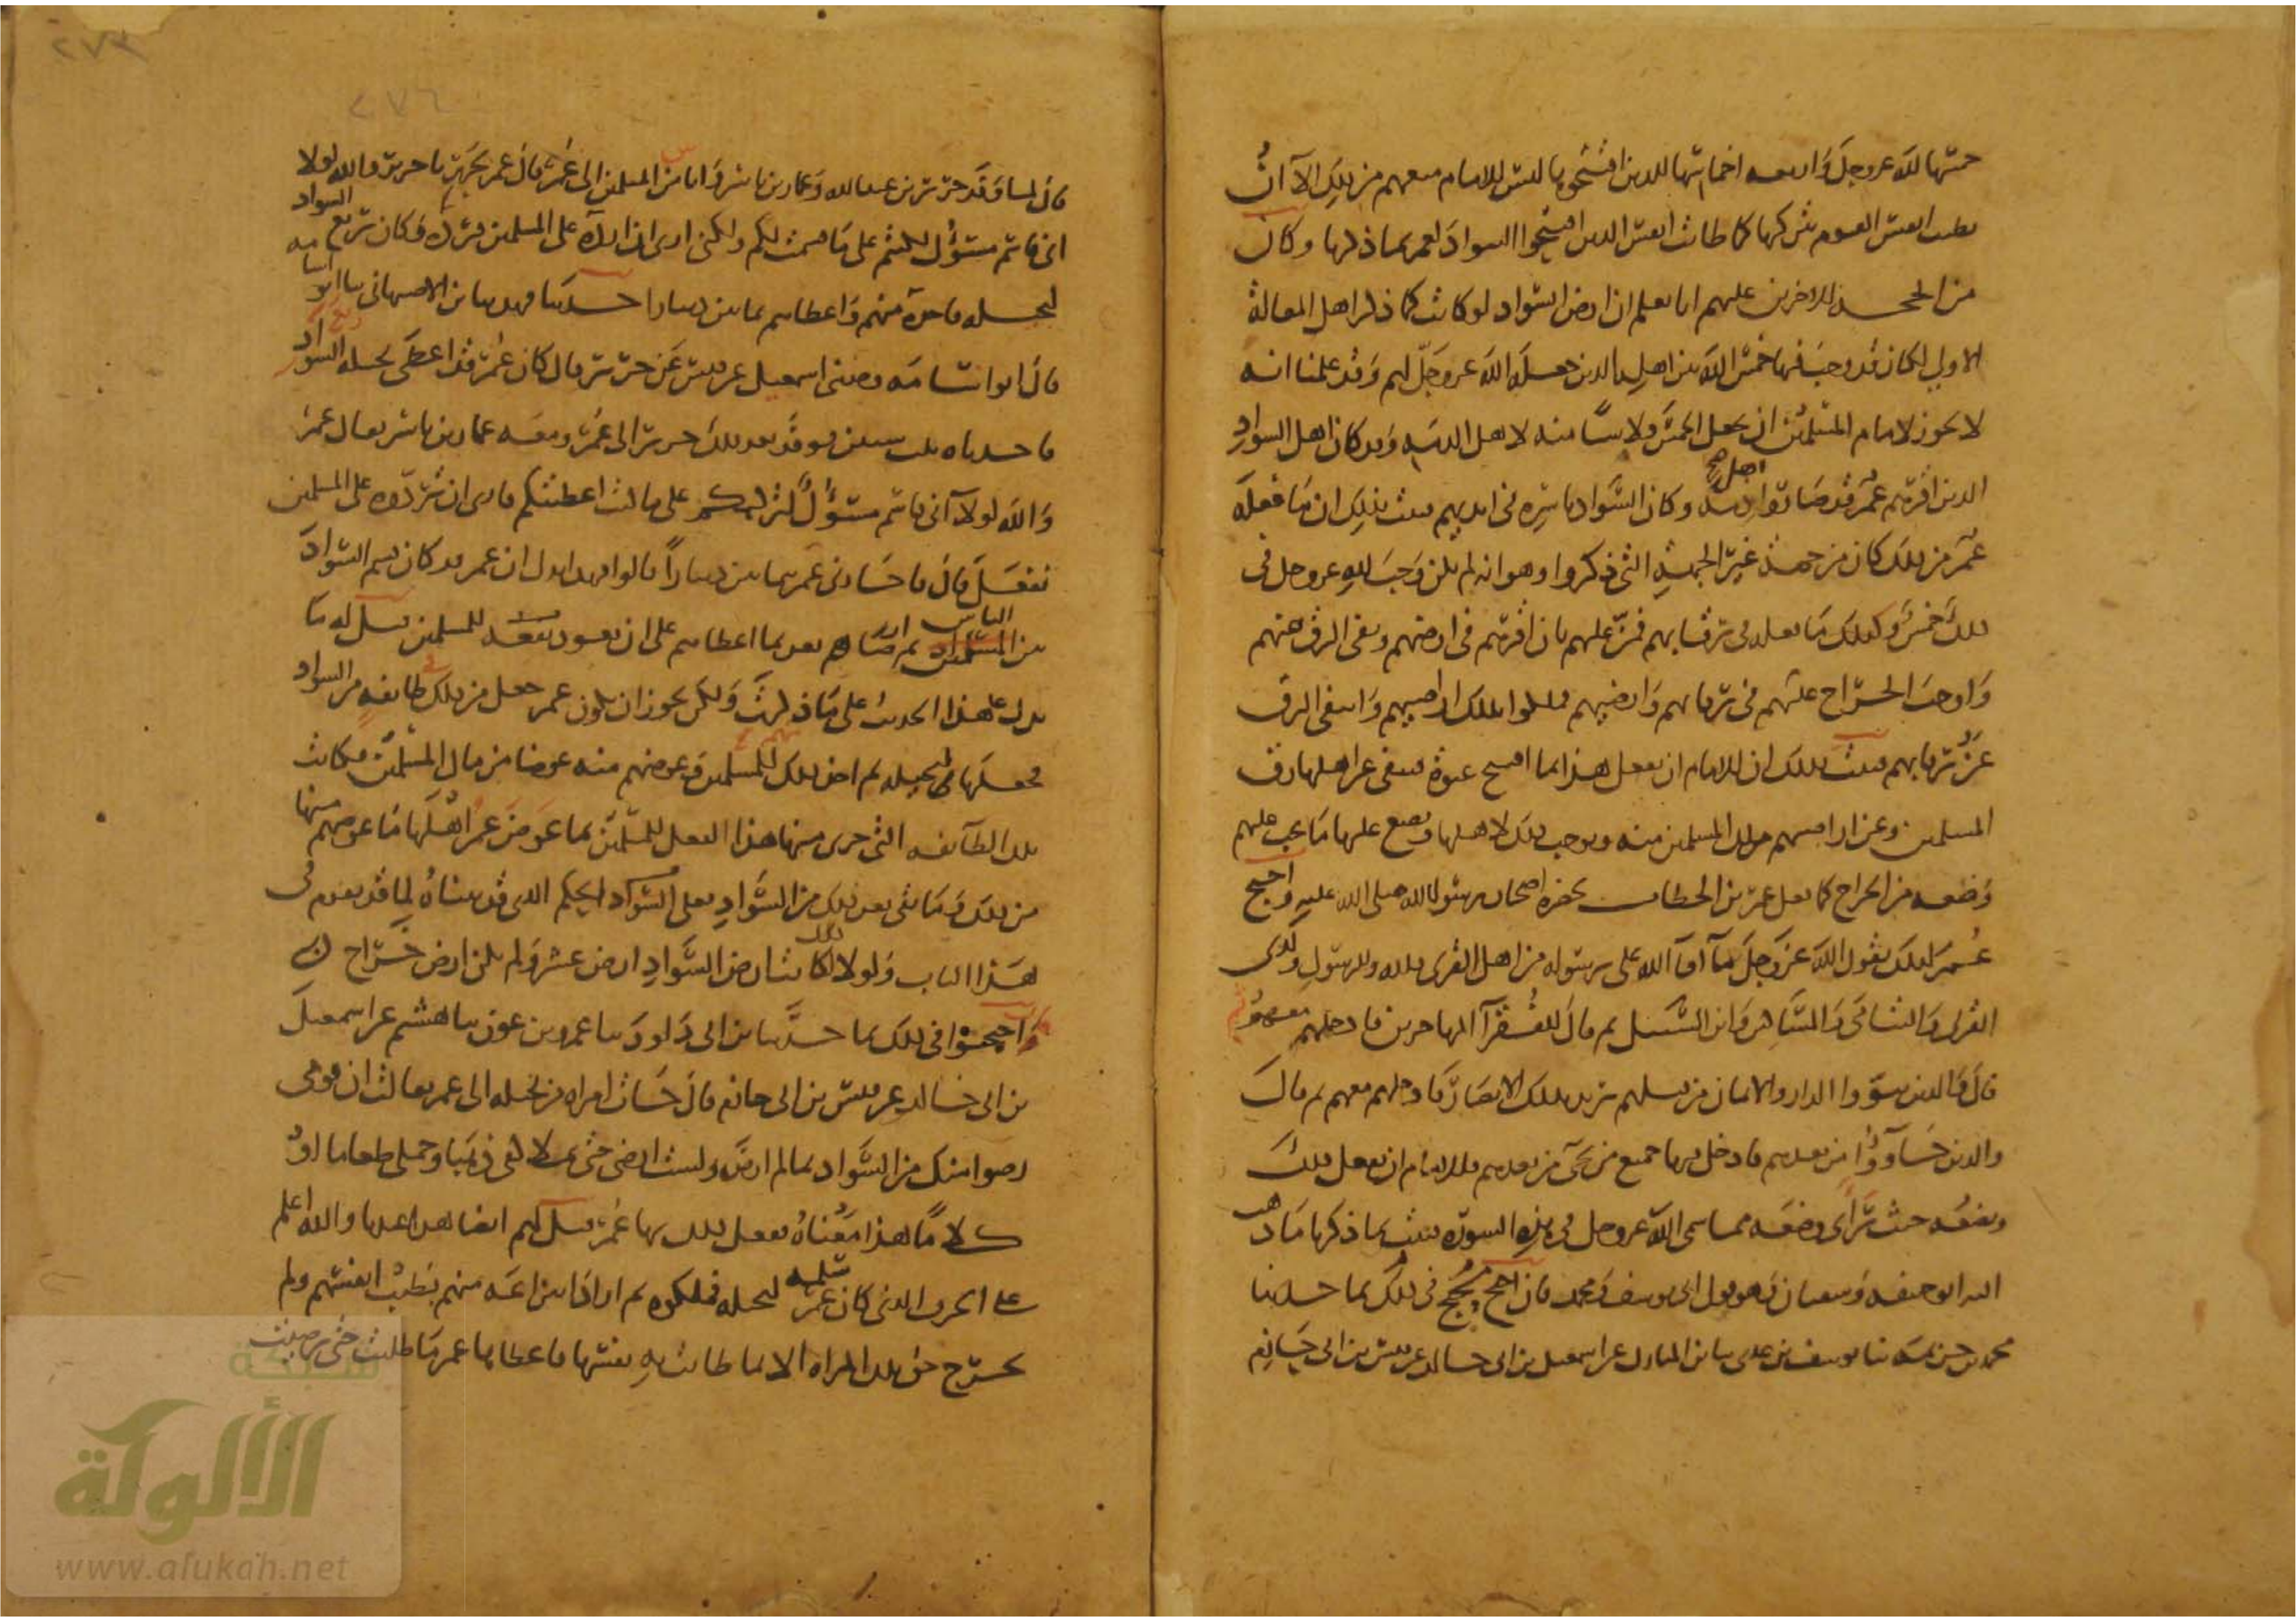 خمسها لله عز وجل وأربعة أخماسها للذين افتتحوها ليس للإمام منعهم من ذلك إلا أن
تطيب أنفس القوم بتركها كما طابت أنفس الذين افتتحوا السواد لعمر بما ذكرنا وكان
من الحجة للآخرين عليهم أنا نعلم أن أرض السواد لو كانت كما ذكر أهل المقالة
الأولى لكان قد وجب فيها خمس الله بين أهله الذين جعله الله عز وجل لهم وقد علمنا أنه
لا يجوز لإمام المسلمين أن يجعل الخمس ولا شيئا منه لأهل الذمة وقد كان أهل السواد
الذين أقرهم عمر قد صاروا أهل ذمة وكان السواد بأسره في أيديهم فثبت بذلك أن ما فعله
عمر من ذلك كان من جهة غير الجهة التي ذكروا وهو أنه لم يكن وجب لله عز وجل في
ذلك خمس وكذلك ما فعله في رقابهم فمن عليهم بأن أقرهم في أرضهم ونفى الرق عنهم
وأوجب الخراج عليهم في رقابهم وأرضيهم فملكوا بذلك أراضيهم وانتفى الرق
عن رقابهم فثبت بذلك أن للإمام أن يفعل هذا بما افتتح عنوة فينفي عن أهلها رق
المسلمين وعن أراضيهم ملك المسلمين منه ويوجب ذلك لأهلها ويضع عليها ما يجب عليهم
وضعه من الخراج كما فعل عمر بن الخطاب بحضرة أصحاب رسول الله صلى الله عليه واحتج
عمر لذلك بقول الله عز وجل ما آفآ الله على رسوله من أهل القرى فلله وللرسول ولذي
القربى واليتامى والمساكين وابن السبيل ثم قال للفقرآ المهاجرين فأدخلهم معهم
قال والذين تبوؤا الدار والإيمان من قبلهم يريد بذلك الأنصار فأدخلهم معهم ثم قال
والذين جاؤوا من بعدهم فأدخل فيها جميع من يجئ من بعدهم فللإمام أن يفعل ذلك
ويضعه حيث رأى وضعه مما سمى الله عز وجل في هذه السورة فثبت بما ذكرنا ما ذهب
إليه أبو حنيفة وسفيان وهو قول أبي يوسف ومحمد فإن احتج محتج في ذلك بما حدثنا
محمد بن خزيمة ثنا يوسف بن عدي ثنا ابن المبارك عن إسمعيل بن أبي خالد عن قيس بن أبي حازم
قال لما وفد جرير بن عبد الله وعمار بن ياسر وأناس من المسلمين إلى عمر قال عمر لجرير يا جرير والله لولا
أني قاسم مسؤل لكنتم على ما قسمت لكم ولكني أرى أن أرده على المسلمين فرده وكان ربع السواد
لبجيلة فأخذه منهم وأعطاهم ثمانين دينارا حدثنا فهد ثنا ابن الأصبهاني ثنا أبو أسامة
قال أبو أسامة وحدثني إسمعيل عن قيس عن جرير قال كان عمر قد أعطى بجيلة ربع السواد
فأخذناه ثلث سنين فوفد بعد ذلك جرير إلى عمر ومعه عمار بن ياسر فقال عمر
والله لولا أني قاسم مسؤل لتركتكم على ما كنت أعطيتكم فأرى أن نرده على المسلمين
ففعل قال فأجازني عمر بثمانين دينارا قالوا فهذا يدل أن عمر قد كان قسم السواد
بين الناس ثم أرضاهم بعد بما أعطاهم على أن يعود نفعه للمسلمين قيل له ما
يدل هذا الحديث على ما ذكرت ولكن يجوز أن يكون عمر جعل من ذلك طائفة من السواد
فجعلها لبجيلة ثم أخذ ذلك للمسلمين منهم وعوضهم منه عوضا من مال المسلمين فكانت
تلك الطائفة التي جرى فيها هذا الفعل للمسلمين بما عوض عمر أهلها ما عوضهم منها
من ذلك وما بقي بعد ذلك من السواد فعلى الحكم الذي قد بيناه لما قد تقدم في
هذا الباب ولولا ذلك لكانت أرض السواد أرض عشر ولم تكن أرض خراج فإن
واحتجوا في ذلك بما حدثنا ابن أبي داود ثنا عمرو بن عون ثنا هشيم عن إسمعيل
بن أبي خالد عن قيس بن أبي حازم قال جاءت امرأة من بجيلة إلى عمر فقالت إن قومي
رضوا منك من السواد بما لم أرض ولست أرضى حتى تملأ كفي ذهبا وجملي طعاما أو
كلاما هذا معناه ففعل ذلك بها عمر قيل لهم أيضا هذا عندنا والله أعلم
على الجزء الذي كان عمر سلمه لبجيلة فملكوه ثم أراد انتزاعه منهم بطيب أنفسهم ولم
يخرج حق تلك المرأة إلا بما طابت به نفسها فأعطاها عمر ما طلبت حتى رضيت
شبكة
الألوكة
www.alukah.net